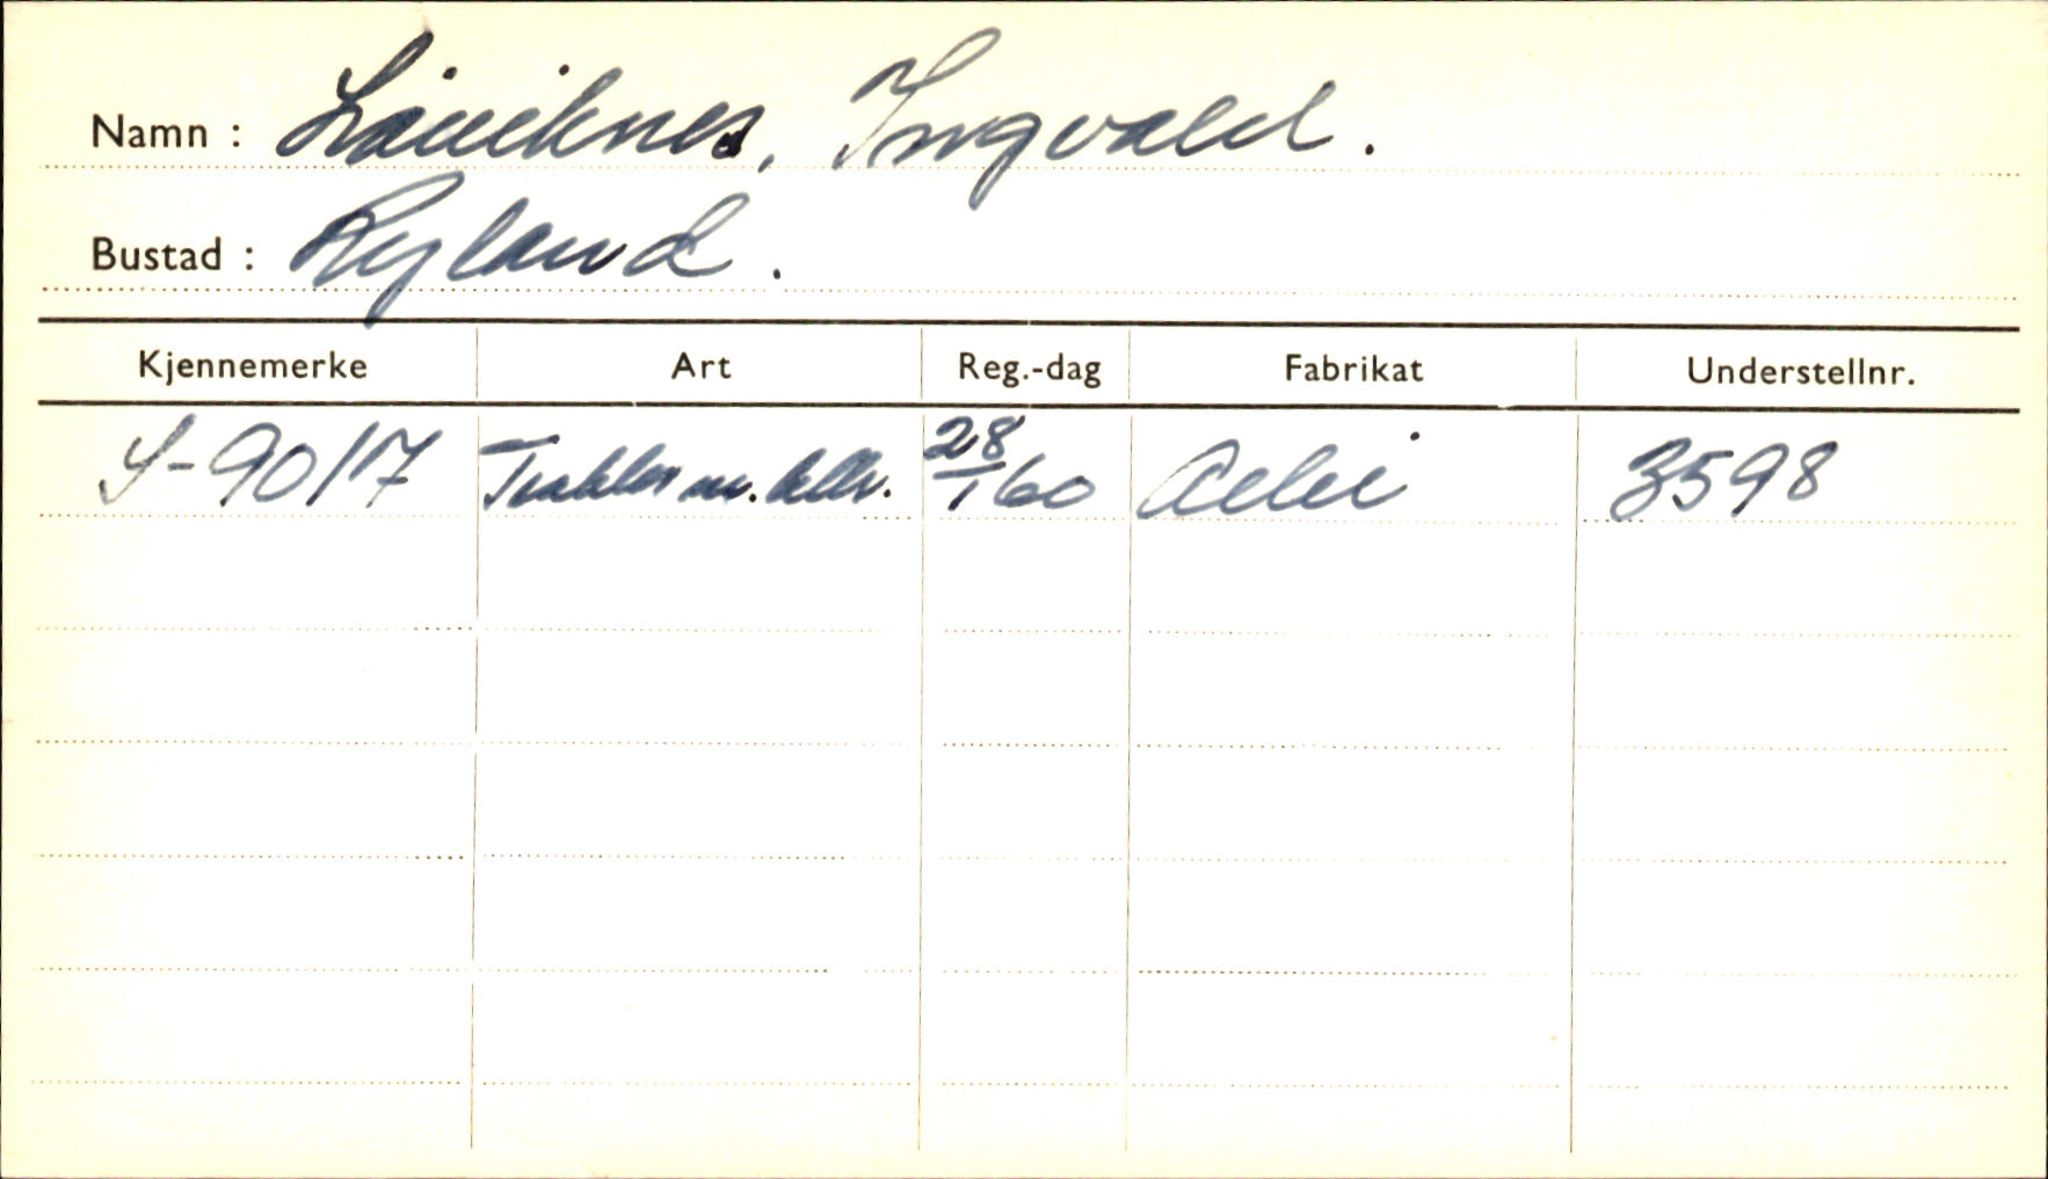 Namn : Låviknes, Ingvald.
Bustad : Ryland.
Kjennemerke Art Reg.-dag Fabrikat Understellnr.
S-90/17 Traktor m. 28/1 60 Aebi 3598